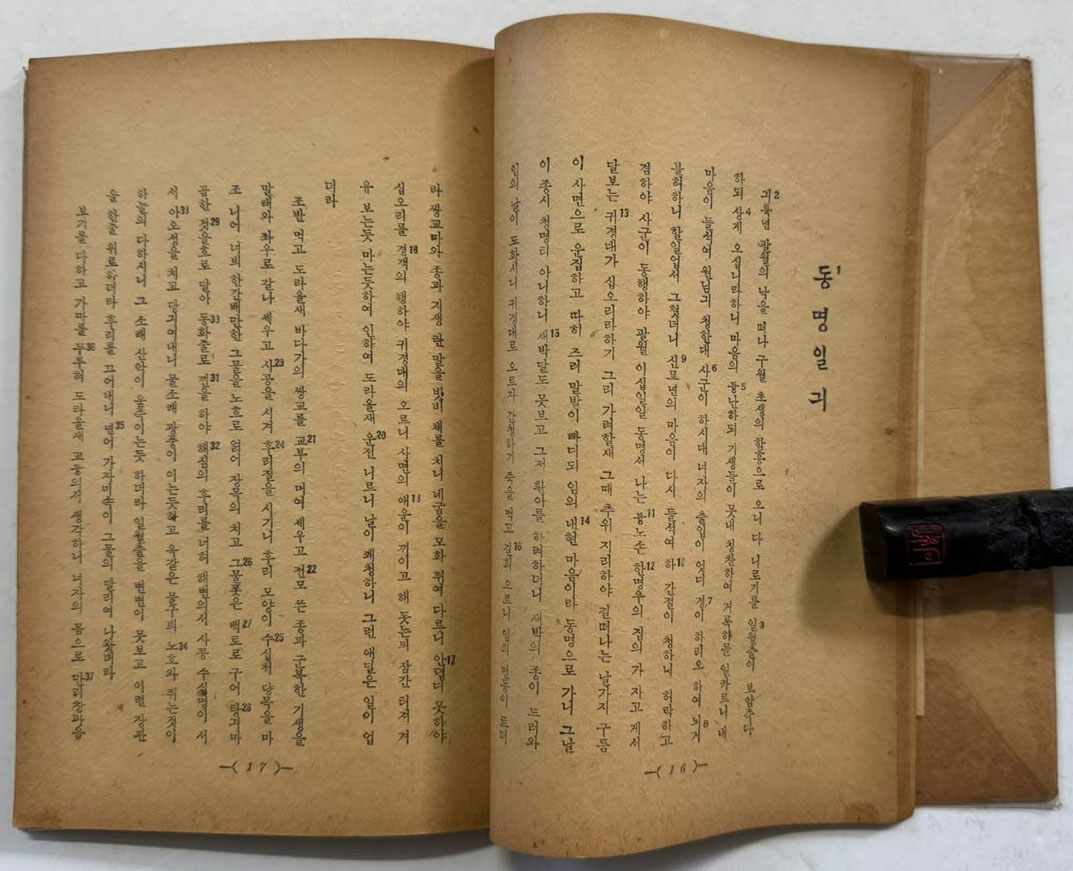 동¹명일긔
긔튝년² 팔월의 낙을 떠나 구월 초생의 함흥으로 오니 다 니로기를 일월출이³ 보암죽다
하되 상게⁴ 오십니라하니 마음의 듕난하되⁵ 기생들이 못내 칭찬하여 거록하믈 일카르니 내
마음이 들석여 원님긔 청한대 사군이⁶ 하시대 녀자의 출입이 엇디 경이⁷ 하리오 하여 뇌거⁸
불허하니 할일업서 그쳣더니 신묘년의⁹ 마음이 다시 들석여 하¹⁰ 간절이 청하니 허락하고
겸하야 사군이 동행하야 팔월 이십일일 동명셔 나는 듕노손¹¹ 한명우의¹² 집의 가 자고 게서
달보는 귀경대가¹³ 십오리라하기 그리 가려할새 그때 추위 지리하야 길떠나는 날가지 구름
이 사면으로 운집하고 따히 즈러 말발이 빠디되 임의 내현¹⁴ 마음이라 동명으로 가니 그날
이 종시 청명티 아니하니 새박달도¹⁵ 못보고 그저 환아를 하며하더니 새박의 종이 드러와
임의 날이 됴화시니 귀경대로 오르쟈 간청하기 죽을 먹고 길히¹⁶ 오르니 임의 먼동이 트더
—( 16 )—
라 쌍교마와 종과 기생 탄 말을 밧비 채를 치니 네굽을 모화 뛰여 다르니 안뎝디¹⁷ 못하야
십오리를 경각의¹⁸ 행하야 귀경대의 오르니 사면의 애운이¹⁹ 끼이고 해 돗는 듸 잠간 터져 겨
유 보는듯 마는듯하여 인하여 도라올새 운전²⁰ 니르니 날이 쾌청하니 그런 애달은 일이 업
더라
조반 먹고 도라올새 바다가의 쌍교를 교부의²¹ 머여 세우고 전모²² 쓴 종과 군복한 기생을
말태와 좌우로 갈나 세우고 사공을²³ 시겨 후리질을²⁴ 시기니 후리 모양이 수십척²⁵ 당목을 마
조 니어 너븨 한간배만한 그물을 노흐로 얽어 장목의 치고 그물폿은²⁶ 백토로²⁷ 구어 탕긔마²⁸
곰한 것으로²⁹ 달아 동화줄로³⁰ 끈을 하야³¹ 해심의³² 후리를 너허 해변의서 사공 수십명이 서
서 아오성을³³ 치고 당긔여대니 물소래 광풍이 이는듯하고 옥갈은 물구븨 노호와³⁴ 뛰는것이
하늘의 다하시니 그 소래 산악이 움죽이는듯 하더라 일월출을 변변이 못보고 이런 장관
을 한줄 위로하더라 후리를 끄어내니 년어³⁵ 가자미속이 그물의 달리여 나왔더라
보기를 다하고 가마를 두루혀³⁶ 도라올새 교듕의서 생각하니 녀자의 몸으로 만리창파를³⁷
—( 17 )—